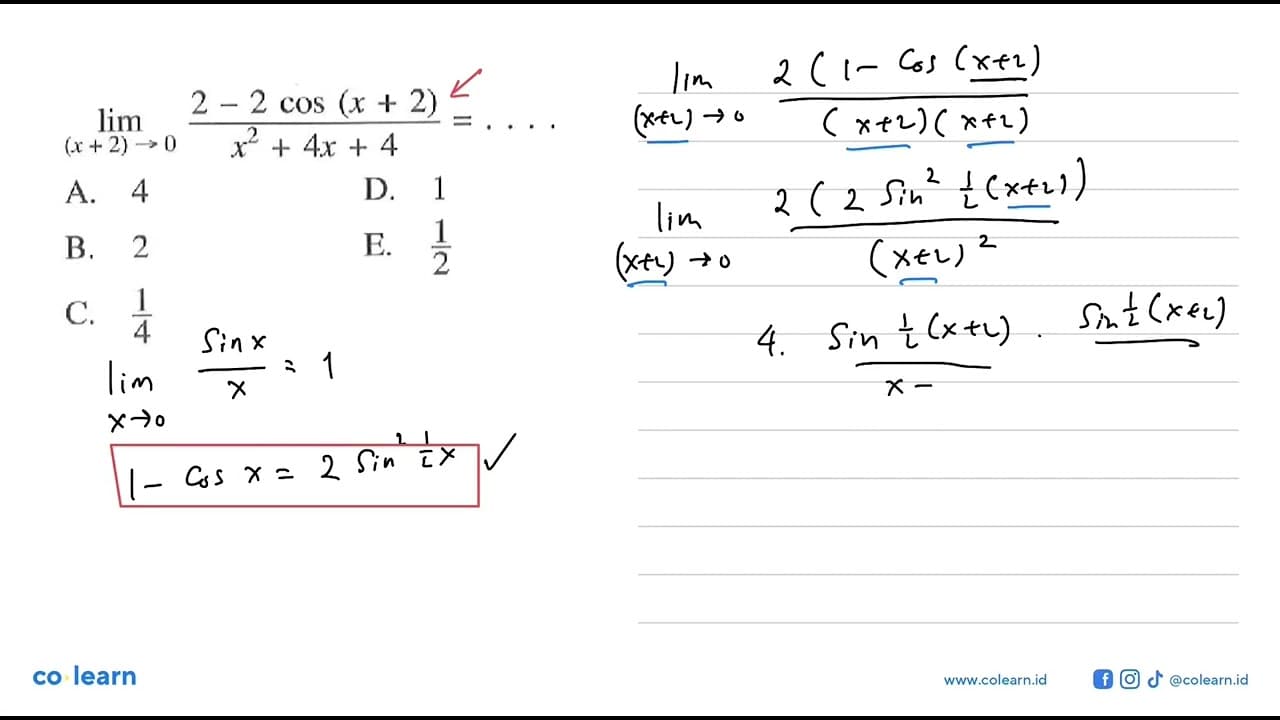 lim (x + 2) → 0 2 – 2 cos (x + 2) / x² + 4x + 4 = . . . .
A. 4
B. 2
C. 1/4
D. 1
E. 1/2
lim x→0 Sin x / x = 1
1 – Cos x = 2 Sin² 1/2 x ✓
lim (x+2) → 0 2 ( 1 – Cos (x+2) / (x+2)(x+2)
lim (x+2) → 0 2 ( 2 Sin² 1/2 (x+2)) / (x+2)²
4. Sin 1/2 (x+2) / x – . Sin 1/2 (x+2)
co learn
www.colearn.id
@colearn.id